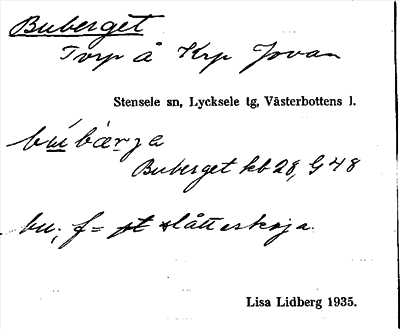 Buberget
Torp å Krp Jovan
Stensele sn, Lycksele tg, Västerbottens l.
búbærja
Buberget kb 28, G 48
bu, f = slåtteskoja.
Lisa Lidberg 1935.